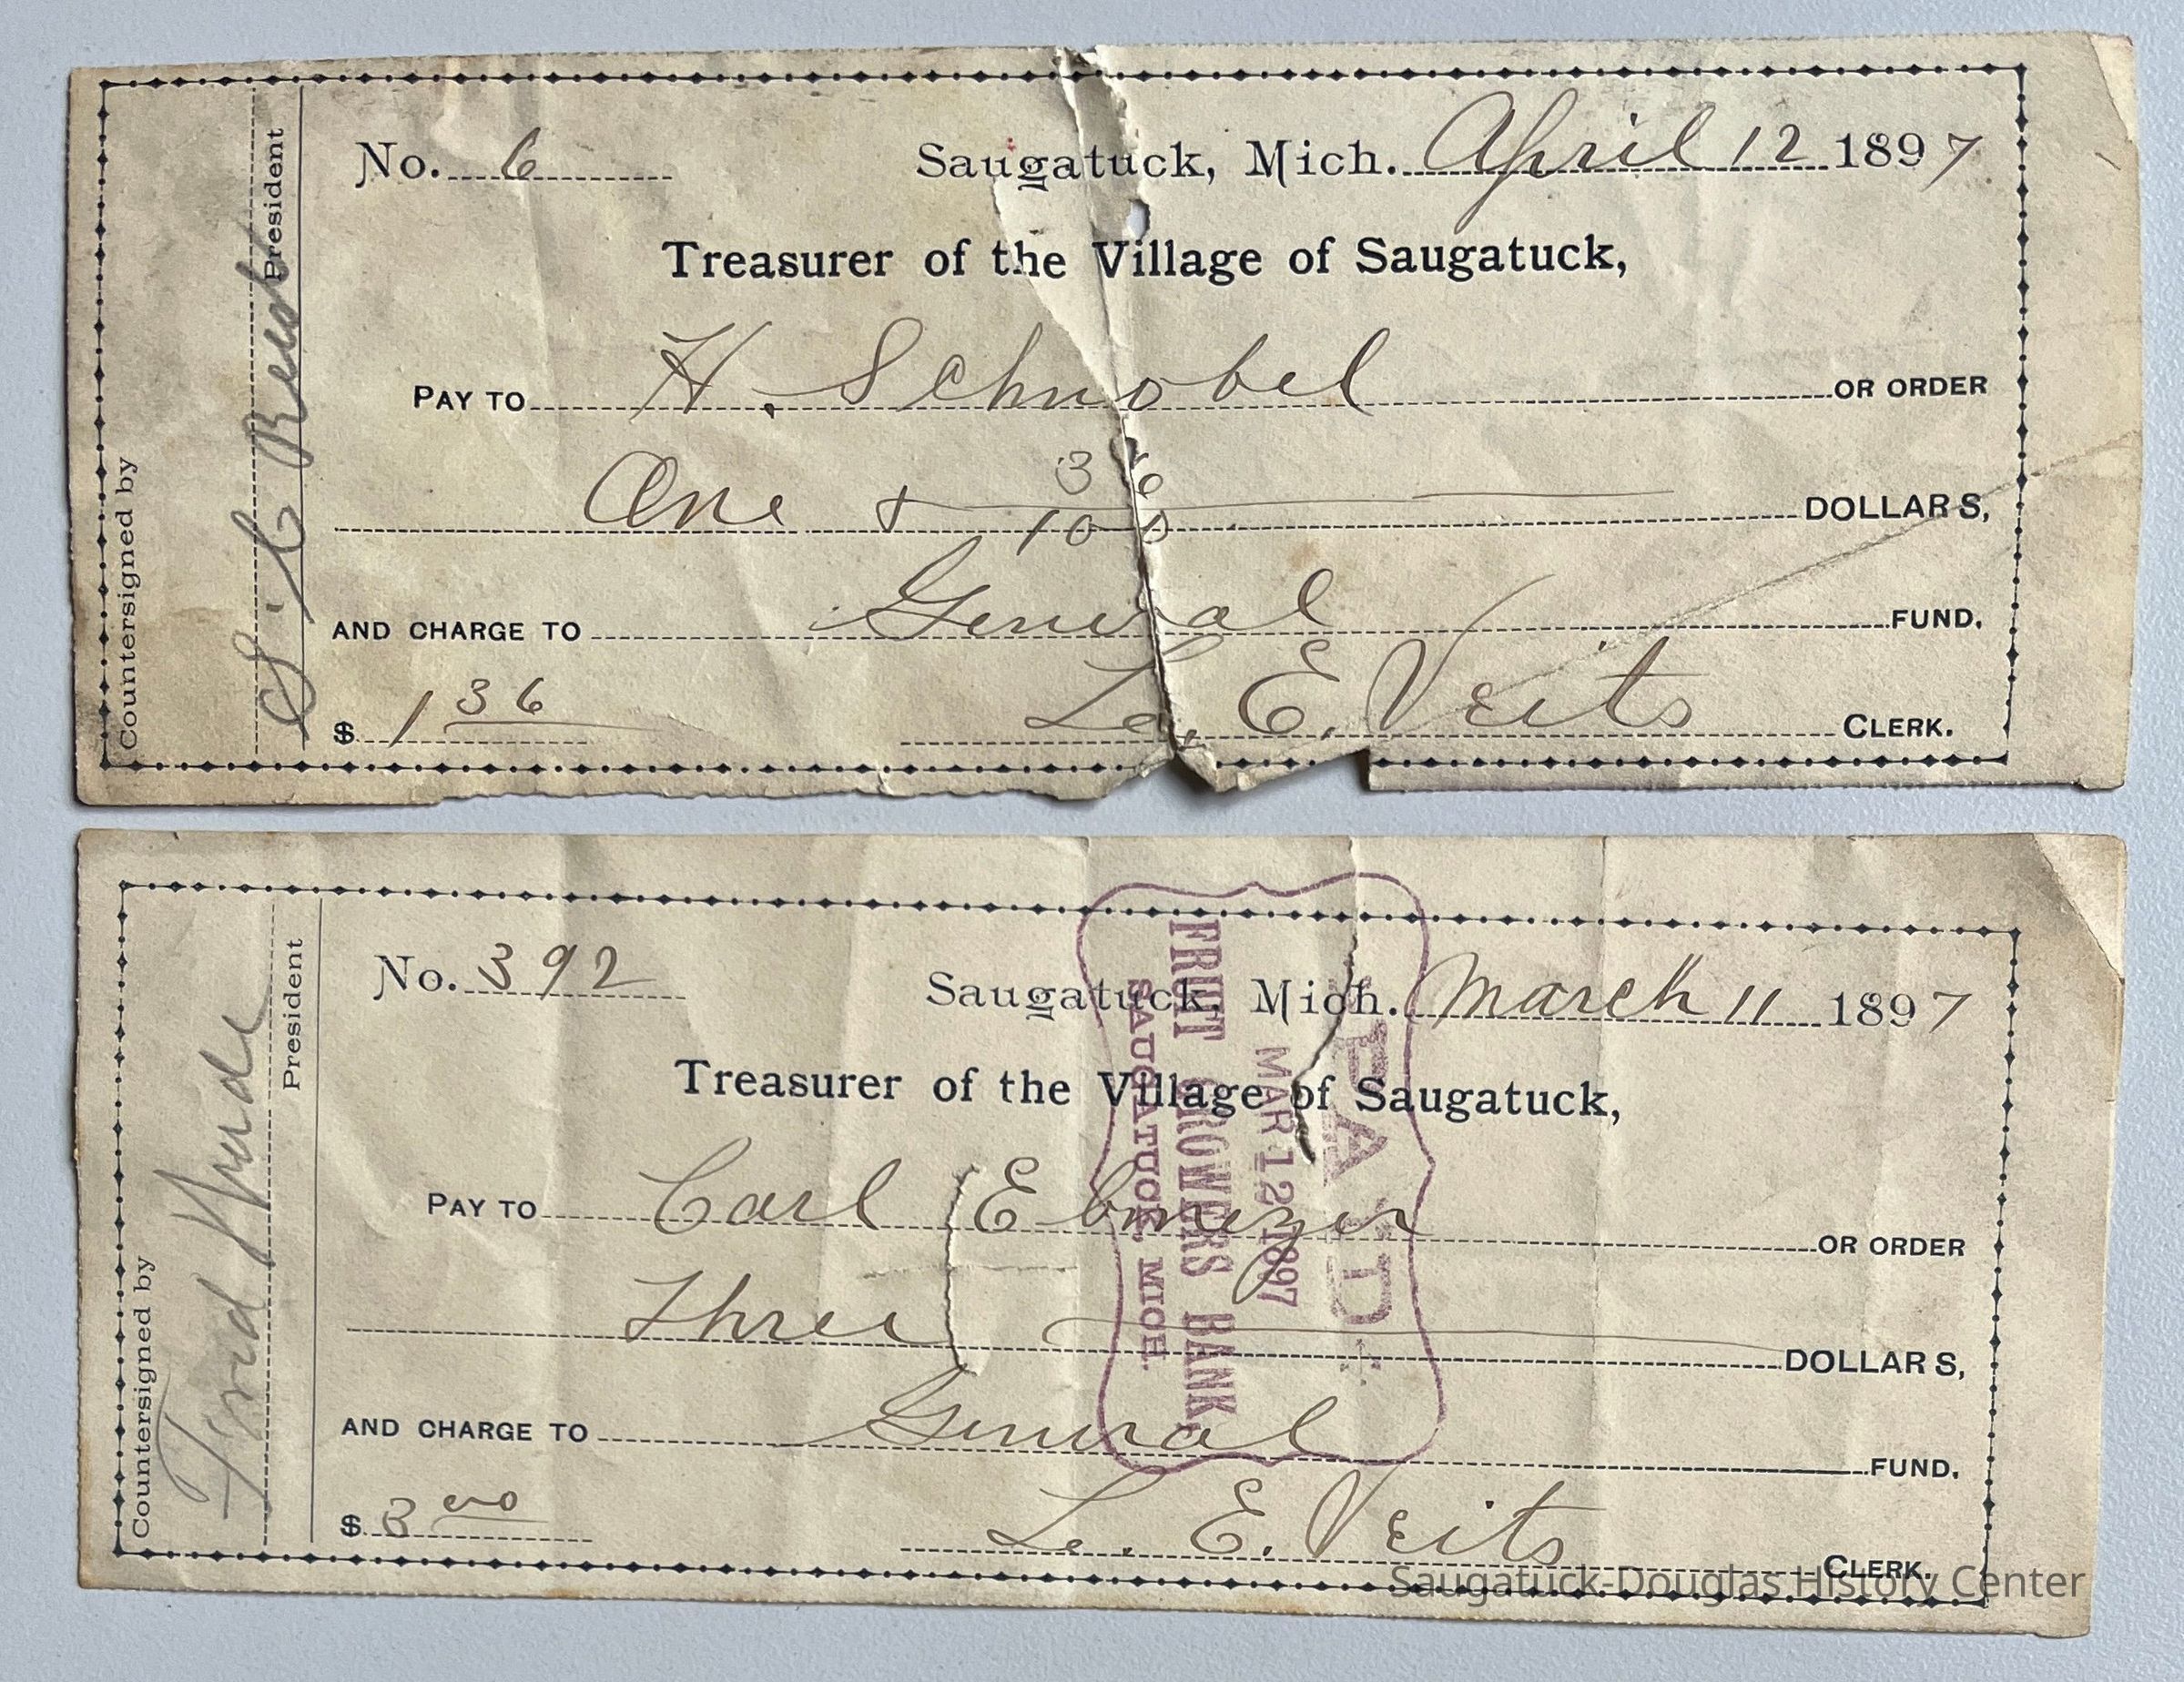 No. 6 Saugatuck, Mich. April 12 1897
Treasurer of the Village of Saugatuck,
PAY TO H. Schnobel OR ORDER
One & 36/100 DOLLARS,
AND CHARGE TO General FUND.
$ 1 36 L. E. Veits CLERK.
Countersigned by
President
No. 392 Saugatuck, Mich. March 11 1897
Treasurer of the Village of Saugatuck,
PAY TO Carl Ebmeyer OR ORDER
Three DOLLARS,
AND CHARGE TO General FUND.
$ 3 00 L. E. Veits CLERK.
Countersigned by
President
PAID
MAR 12 1897
FRUIT GROWERS BANK,
SAUGATUCK, MICH.
Saugatuck-Douglas History Center